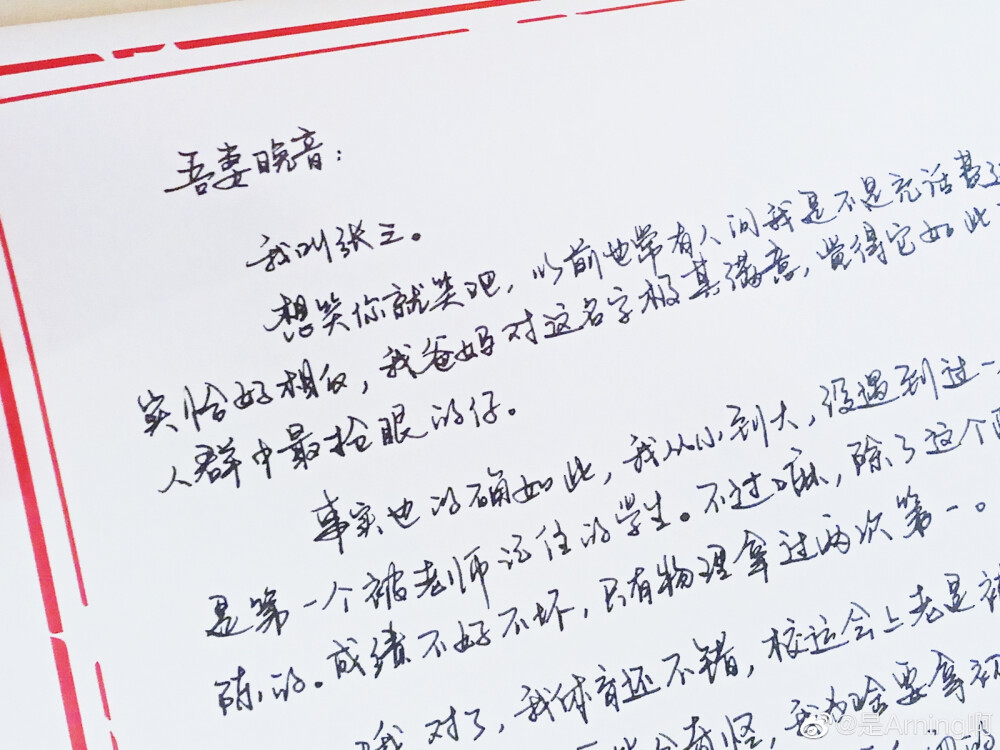 吾妻晚音:
我叫张三。
想笑你就笑吧,以前也常有人问我是不是充话费
实恰好相反,我爸妈对这名字极其满意,觉得它如此
人群中最抢眼的仔。
事实也的确如此,我从小到大,没遇到过一
是第一个被老师记住的学生。不过嘛,除了这个
陈的。成绩不好不坏,只有物理拿过两次第一。
对了,我体育还不错,校运会上老是被
奇怪,我为啥要拿
@是Arning啊